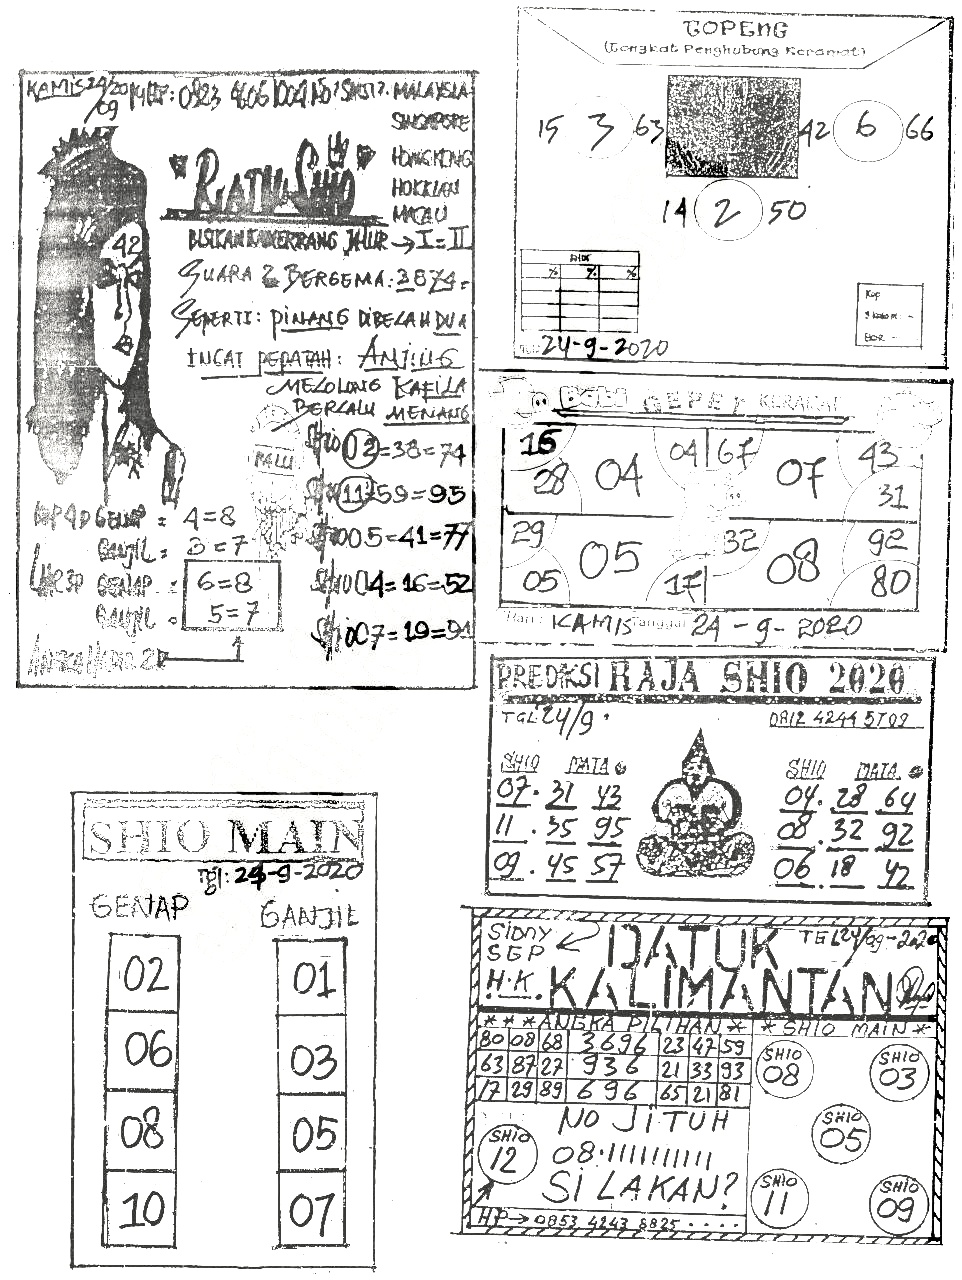 TOPENG
(Tongkat Penghubung Keramat)
15 3 63
42 6 66
14 2 50
% % %
Kop
Ekor
24-9-2020
KAMIS 24/2020
/09
HP: 0823 4606 1004
MALAYSIA
SINGAPORE
HONGKONG
HOKKIAN
MACAU
"RATU SHIO"
JALUR → I = II
42
SUARA 2 BERGEMA: 3874=
SEPERTI: PINANG DIBELAH DUA
INGAT PEPATAH: ANJING
MELOLONG KAFILA
BERLALU MENANG
PALU
Shio 02=38=74
Shio 11=59=95
Shio 05=41=77
Shio 04=16=52
Shio 07=19=91
KOP 4D GENAP = 4=8
GANJIL = 3=7
GENAP = 6=8
GANJIL = 5=7
1
GEPENG KERAMAT
16 28 04 04 67 07 43 31
29 05 05 17 32 08 92 80
Hari: KAMIS Tanggal 24-9-2020
PREDIKSI RAJA SHIO 2020
TGL 24/9.
0812 4244 5709
SHIO MATA
SHIO MATA
07. 31 43
04. 28 64
11. 35 95
08. 32 92
09. 45 57
06. 18 42
SHIO MAIN
Tgl: 24-9-2020
GENAP GANJIL
02 01
06 03
08 05
10 07
SIDNY
SGP
H.K.
DATUK
KALIMANTAN
TGL 24/09-2020
***ANGKA PILIHAN*
*SHIO MAIN*
80 08 68 3696 23 47 59
63 87 27 936 21 33 93
17 29 89 696 65 21 81
SHIO 08
SHIO 03
SHIO 05
SHIO 11
SHIO 09
NO JITUH
SHIO 12
08.11111111111
SILAKAN?
HP→ 0853 4243 8825 ....